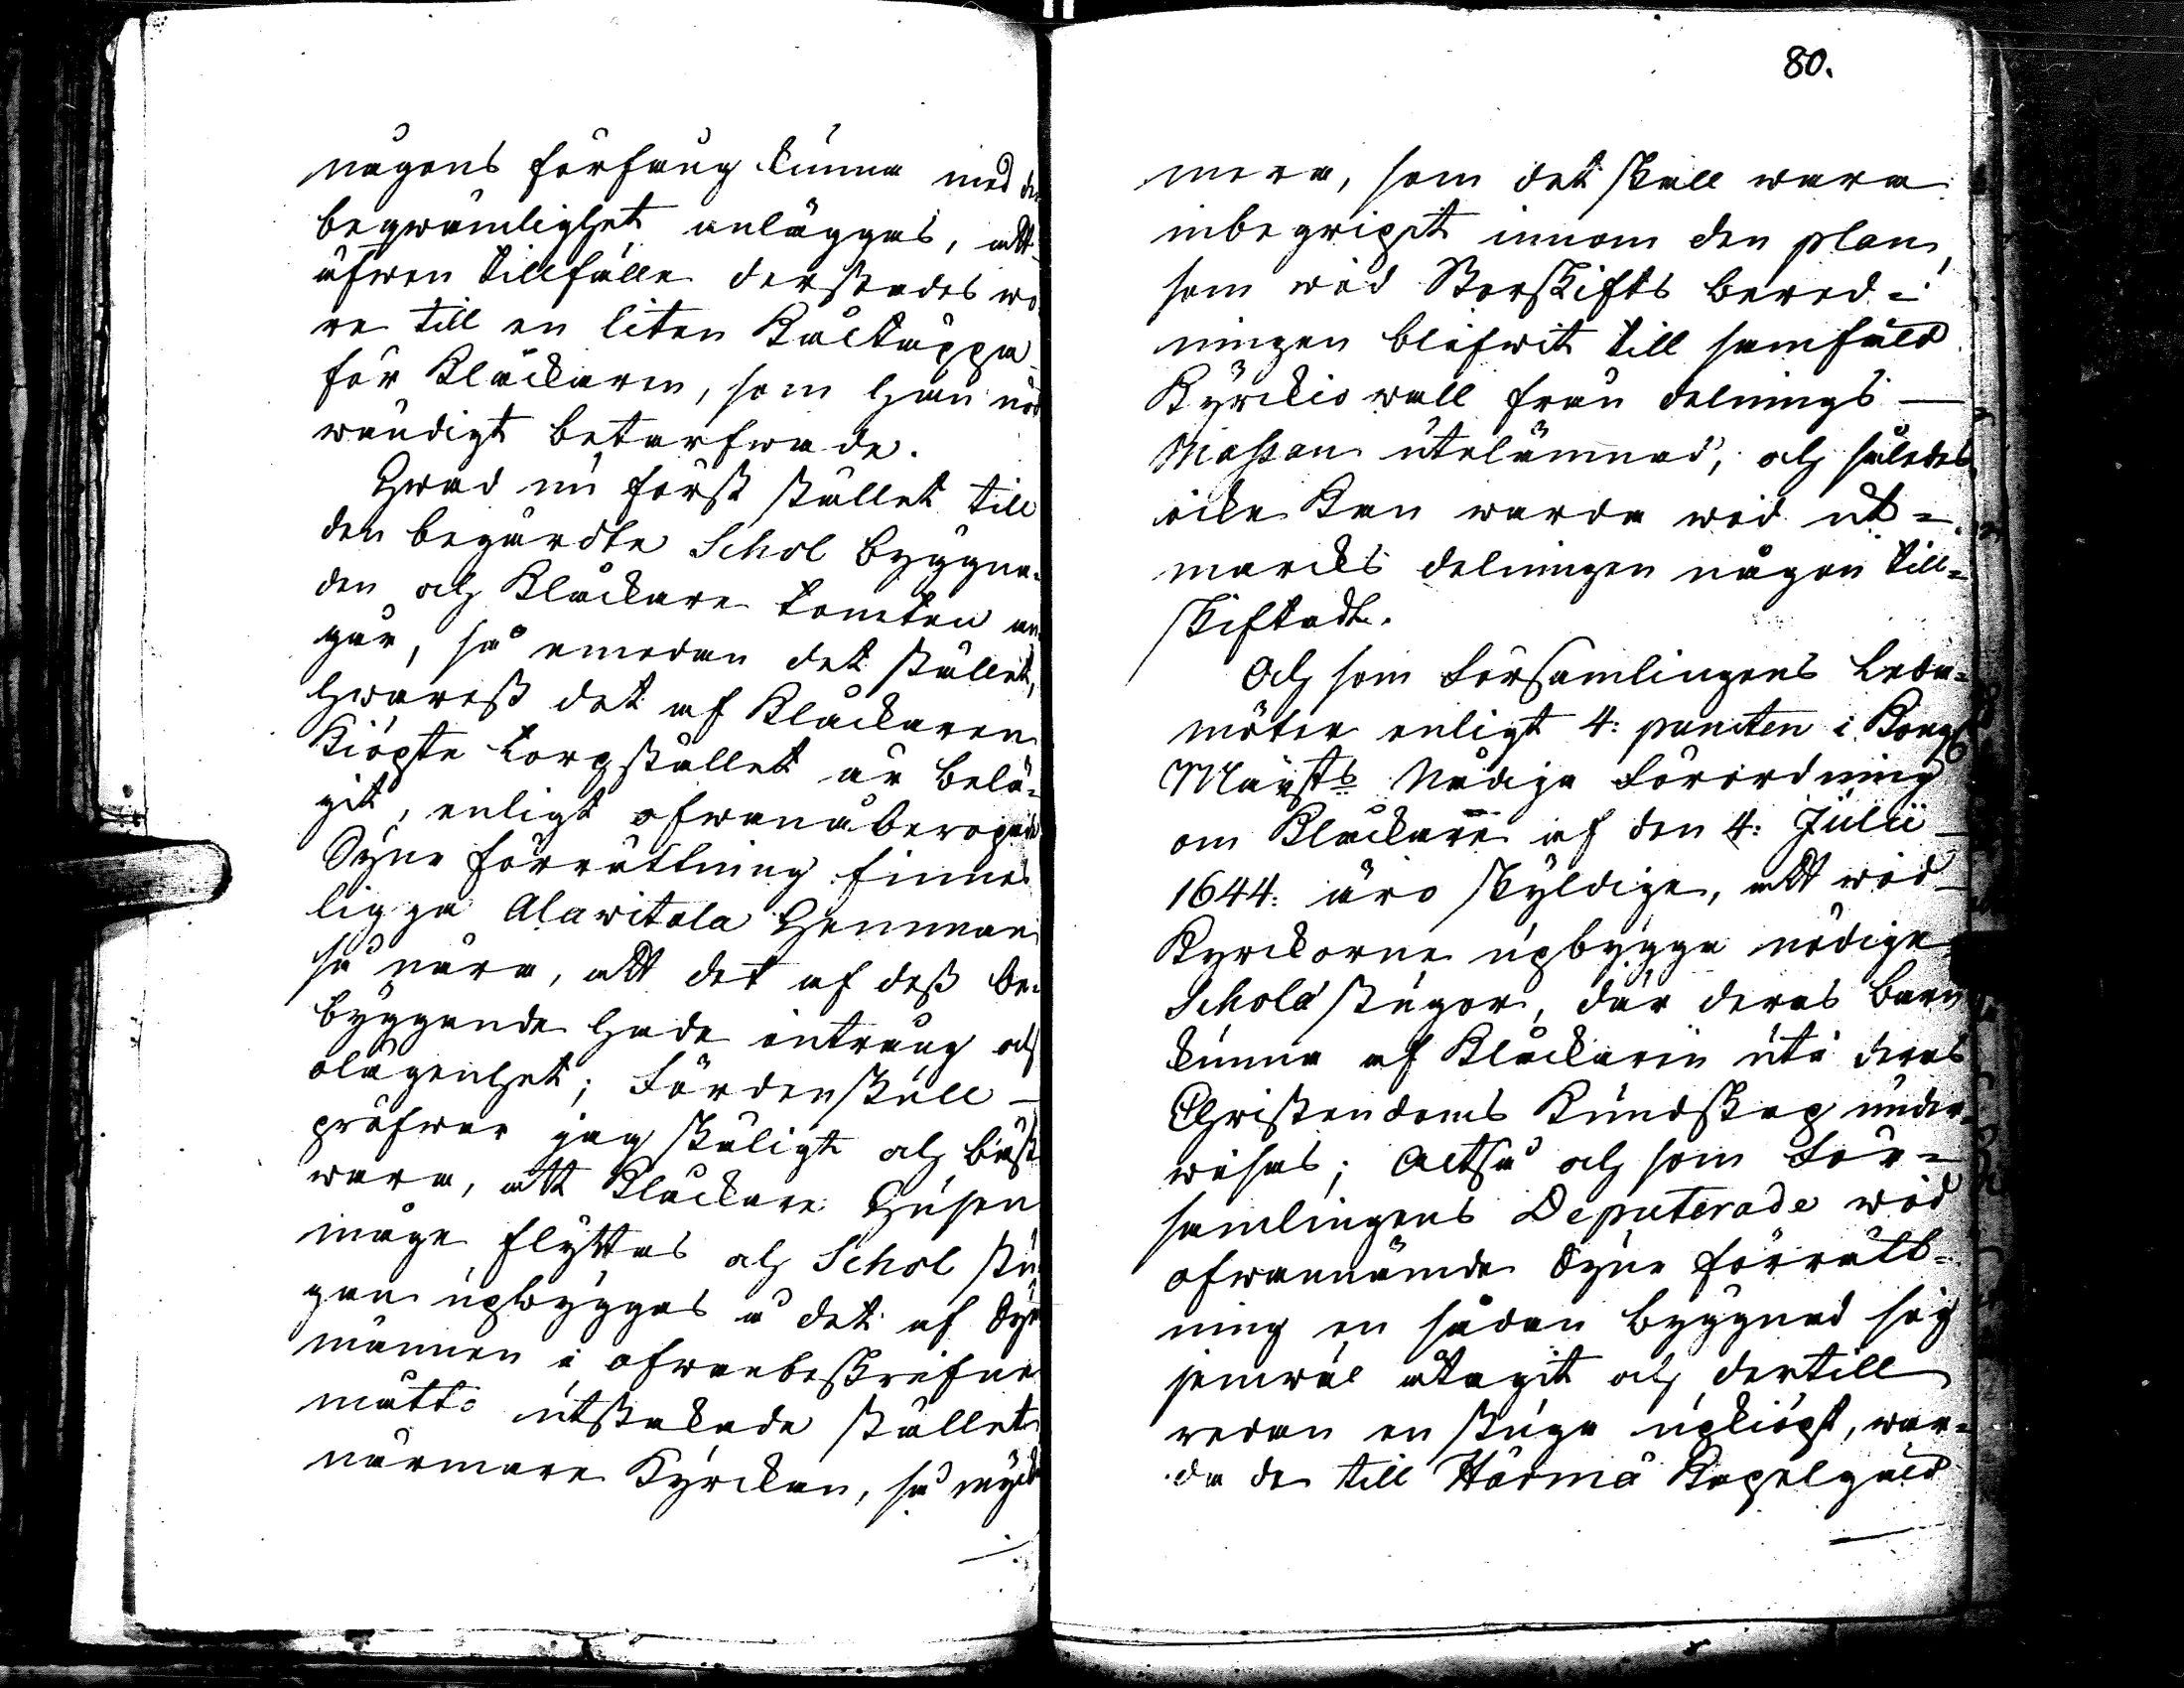 någons förfång kunna med den
beqwämlighet anläggas, att
äfwen tillfälle derstädes wo
re till en liten Kåltäppa
för Klåckaren, som han nöd
wändigt betarfwade.
Hwad nu först stället till
den begärdte Schol byggna-
den och Klåckare tomten an
går, så emedan det stället,
hwarest det af Klåckaren
Kiöpte torpstället är belä-
git, enligt ofwanåberopade
Syne förrättning finnes
ligga Alawitala Hemman
så nära, att det af dess be-
byggande hade intrång och
olägenhet; Fördenskull
pröfwar jag skäligt och bäst
wara, att Klåckare Husen
måge flyttas och Schol stu
gan upbyggas å det af Syne
männen i ofwanbeskrifne
måtto utstakade stället
närmare Kyrckan, så myckt
80.
mera, som det skall wara
inbegripit innom den plan,
som wid Storskifts bered-
ningen blifwit till samfäld
Kyrckio wall från delnings
Massan utelämnad, och således
icke Kan warda wid ut-
marcks delningen någon till-
skiftadt.
Och som Församlingens Leda-
möter enligt 4: puncten i Kongl
Maijsts Nådiga Förordning
om Klåckare af den 4: Julii
1644: äro skyldige, att wid
Kyrckorne upbygga nödige
Schola stugor, där deras barn
kunna af Klåckarin uti deras
Christendoms Kundskap under-
wisas; Altså och som För-
samlingens Deputerade wid
ofwannämde Syne förrätt-
ning en sådan byggnad sig
jemwäl åtagit och dertill
redan en stuga upkiöpt, war-
da de till Härmä Kapelgäld